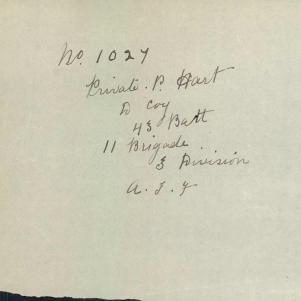 No. 1027
Private. P. Hart
D Coy
43 Batt
11 Brigade.
3 Division
A. I. F